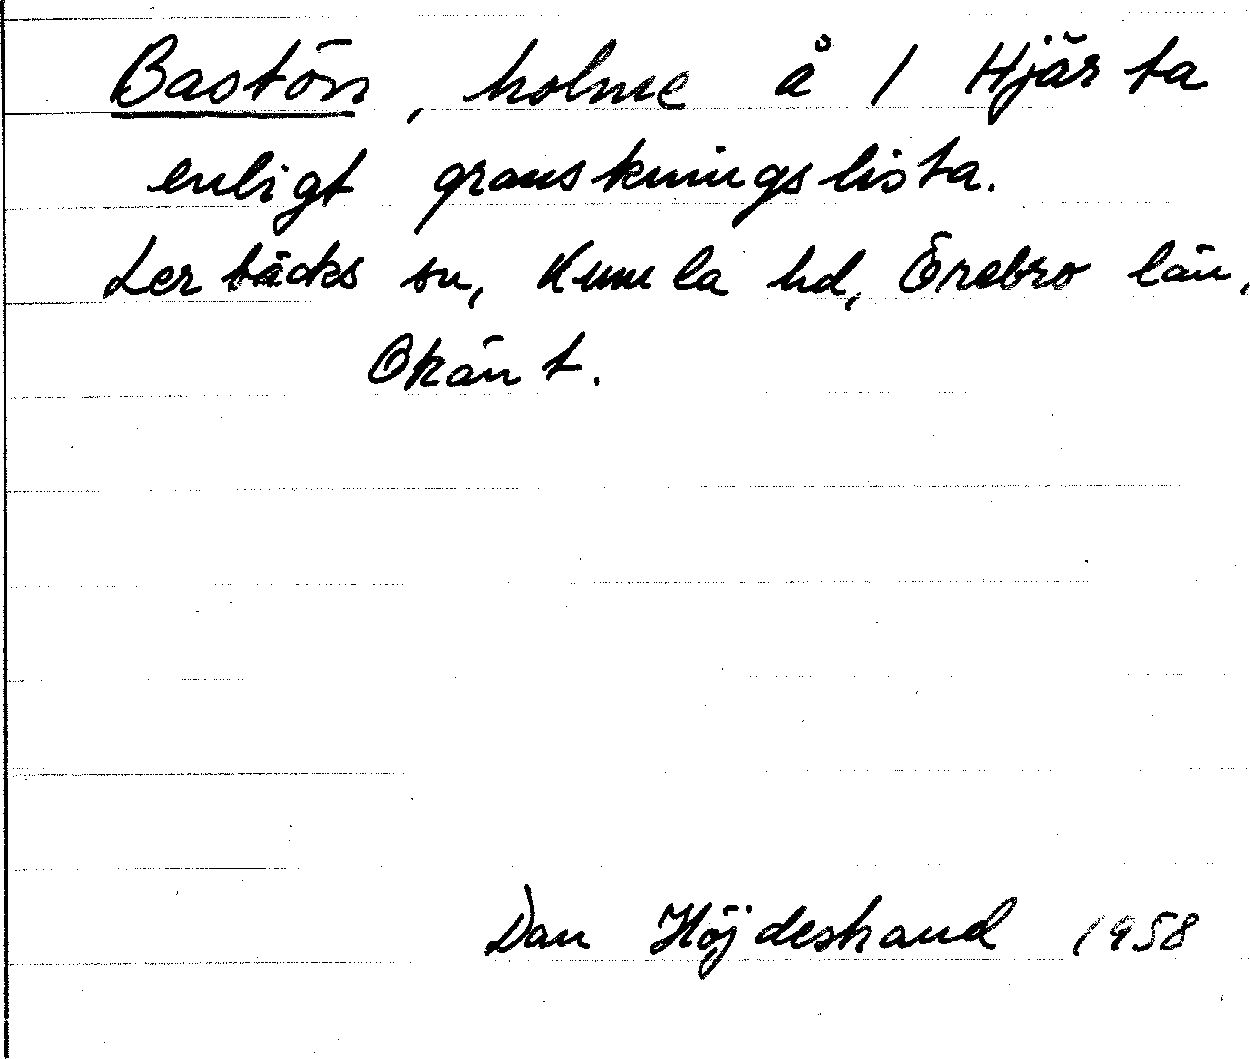 Bastön, holme å 1 Hjärta
enligt granskningslista.
Lerbäcks sn, Kumla hd, Örebro län,
Okänt.
Dan Höjdestrand 1958